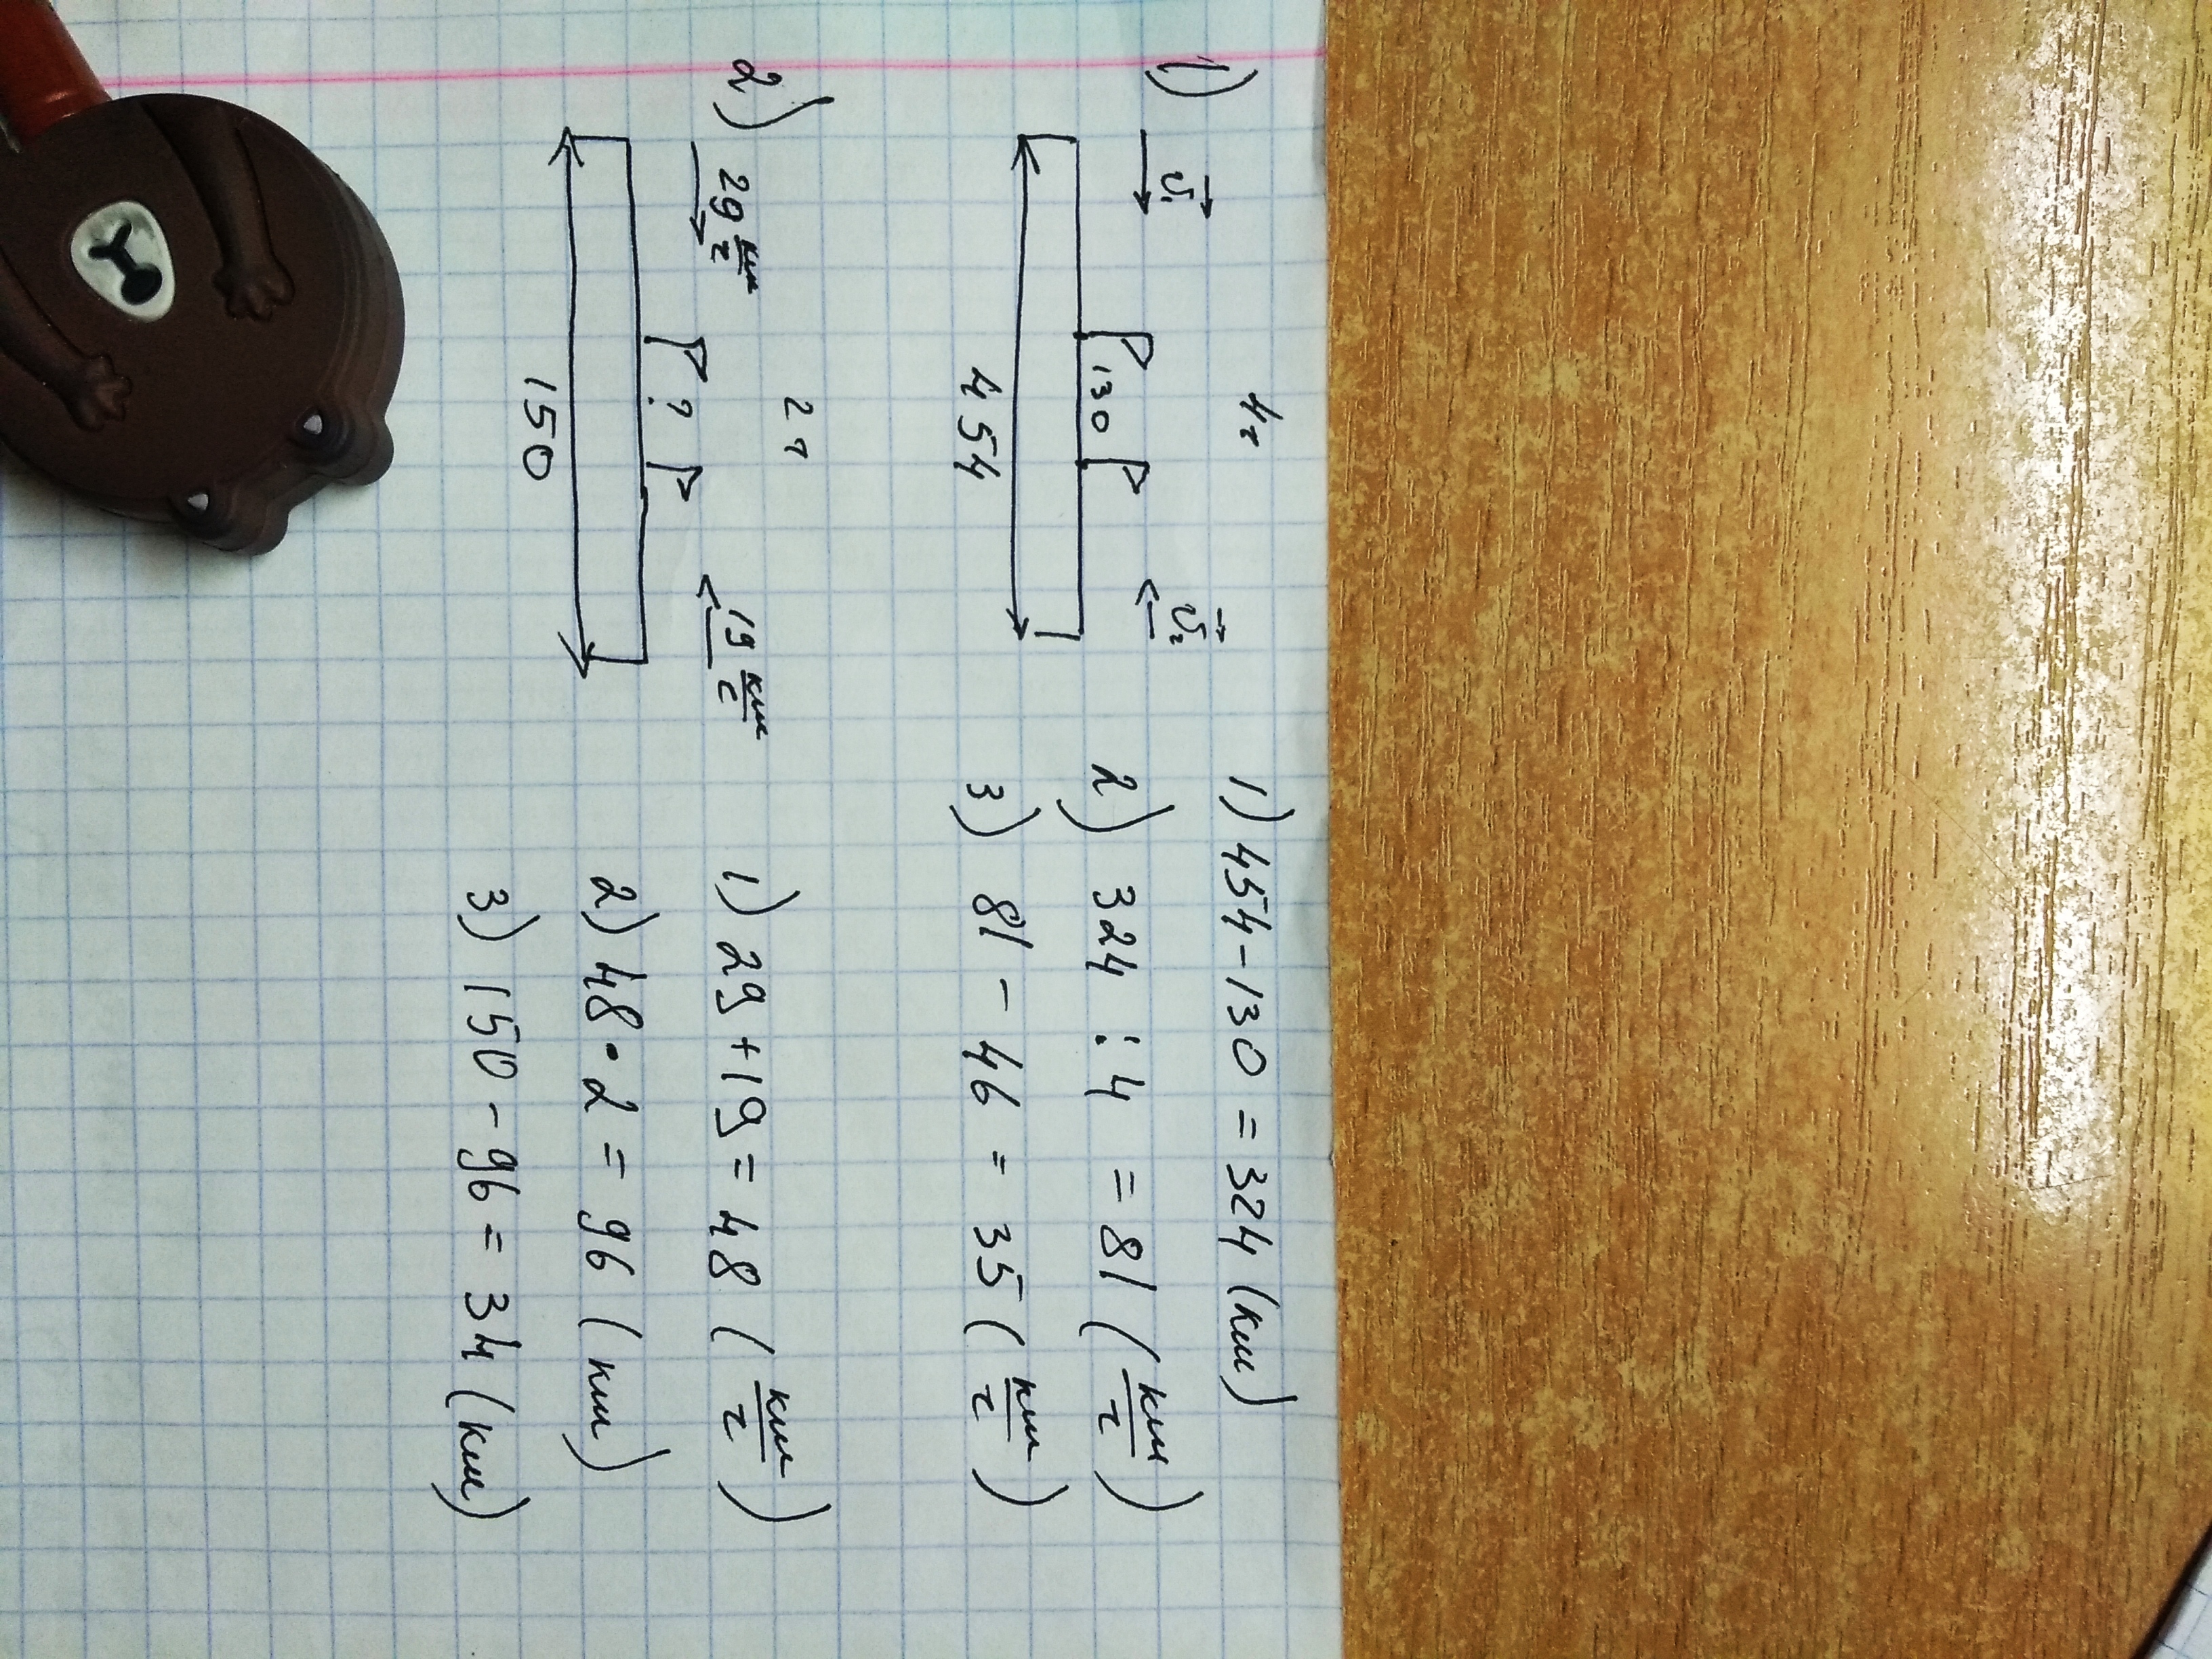 1)
υ₁
4г
υ₂
130
454
1) 454 - 130 = 324 (км)
2) 324 : 4 = 81 (км/г)
3) 81 - 46 = 35 (км/г)
2)
29 км/г
2г
19 км/с
?
150
1) 29 + 19 = 48 (км/г)
2) 48 · 2 = 96 (км)
3) 150 - 96 = 34 (км)